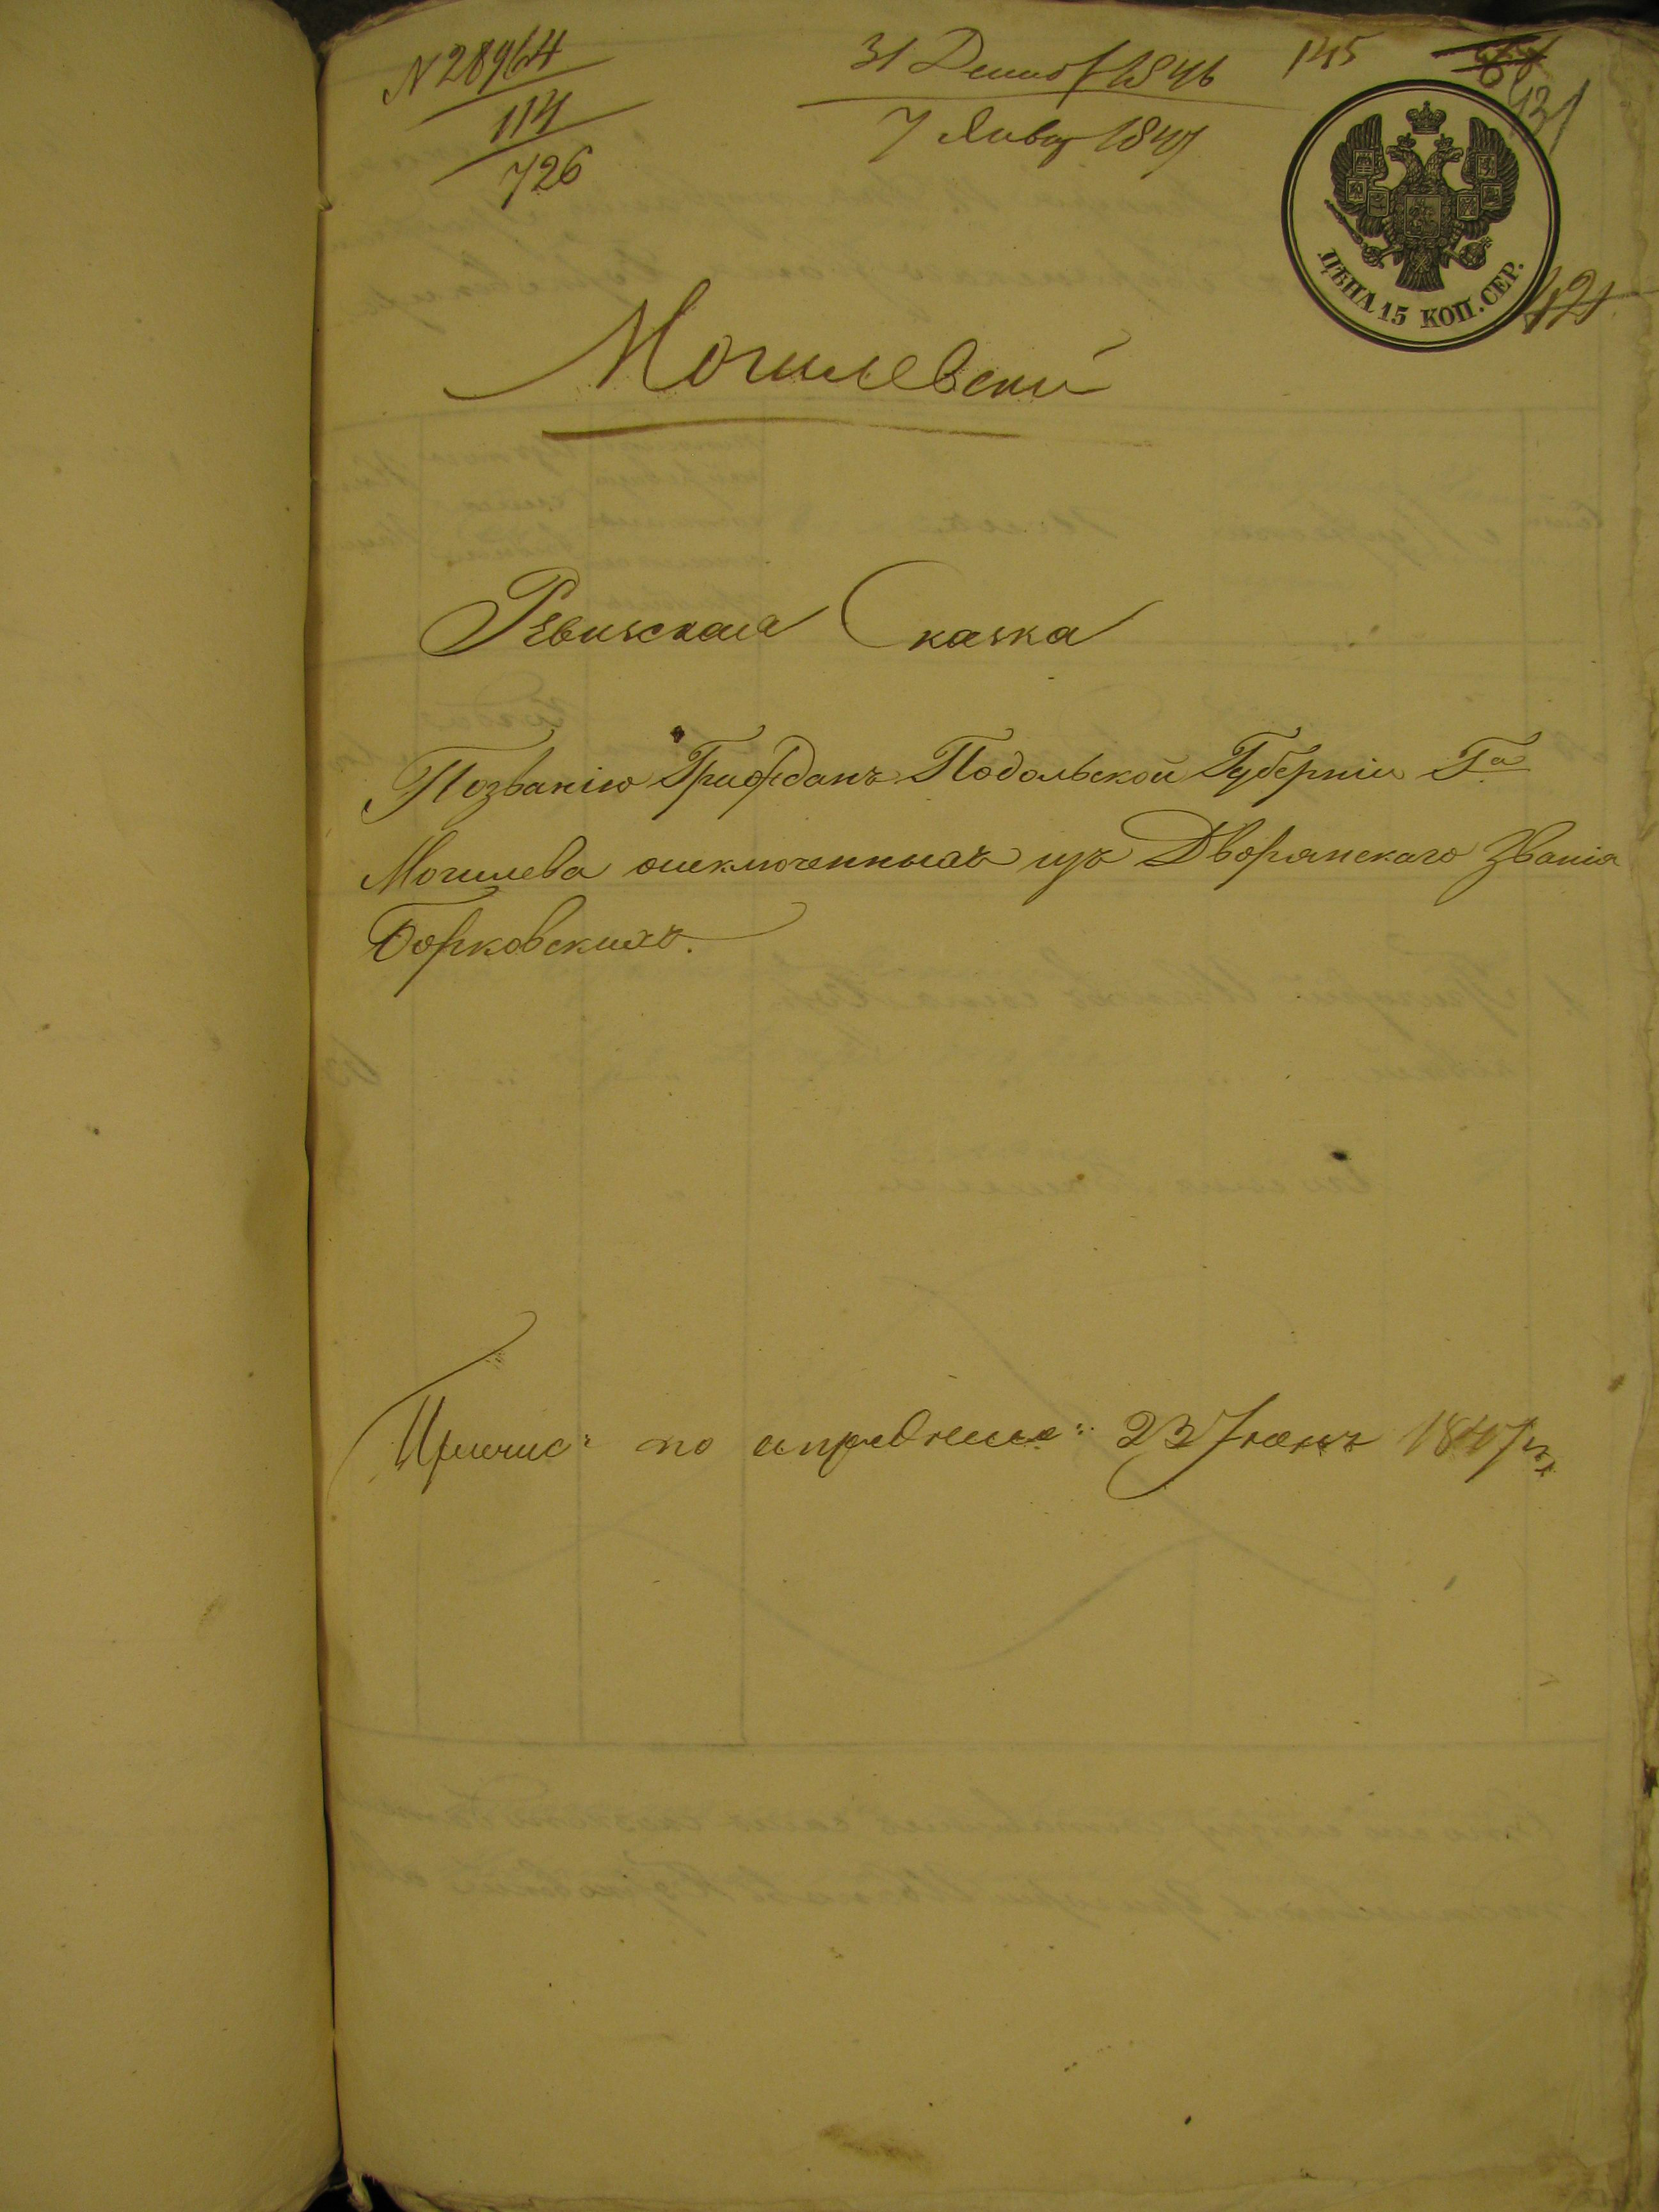 N 28964
114
726
31 Декаб 1846
7 Янвр 1847
145
ЦѢНА 15 КОП. СЕР.
121
Могилевский
Ревизская Сказка
По званію Граждан Подольской Губерніи Га
Могилева исключенныхъ изъ Дворянскаго Званія
Борковскихъ.
Причис: по опредѣленію: 23 Іюнъ 1847 г.